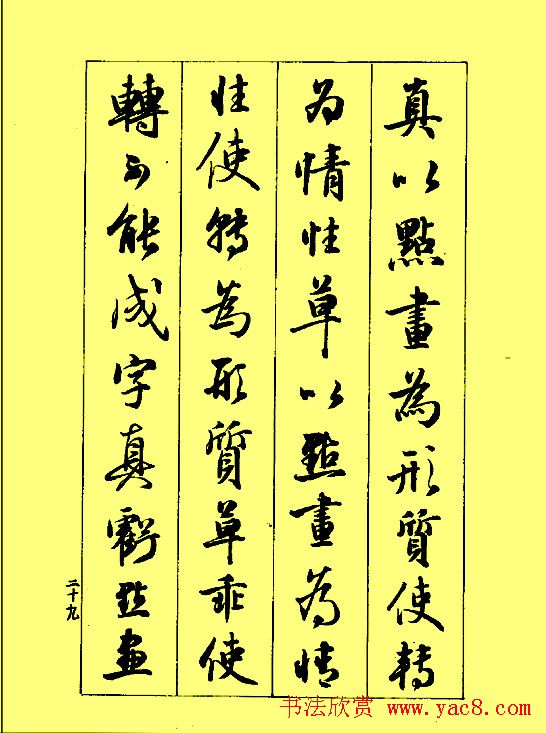 真以點畫為形質使轉
为情性草以點畫為情
性使轉為形質草乖使
轉不能成字真虧點画
二十九
书法欣赏 www.yac8.com